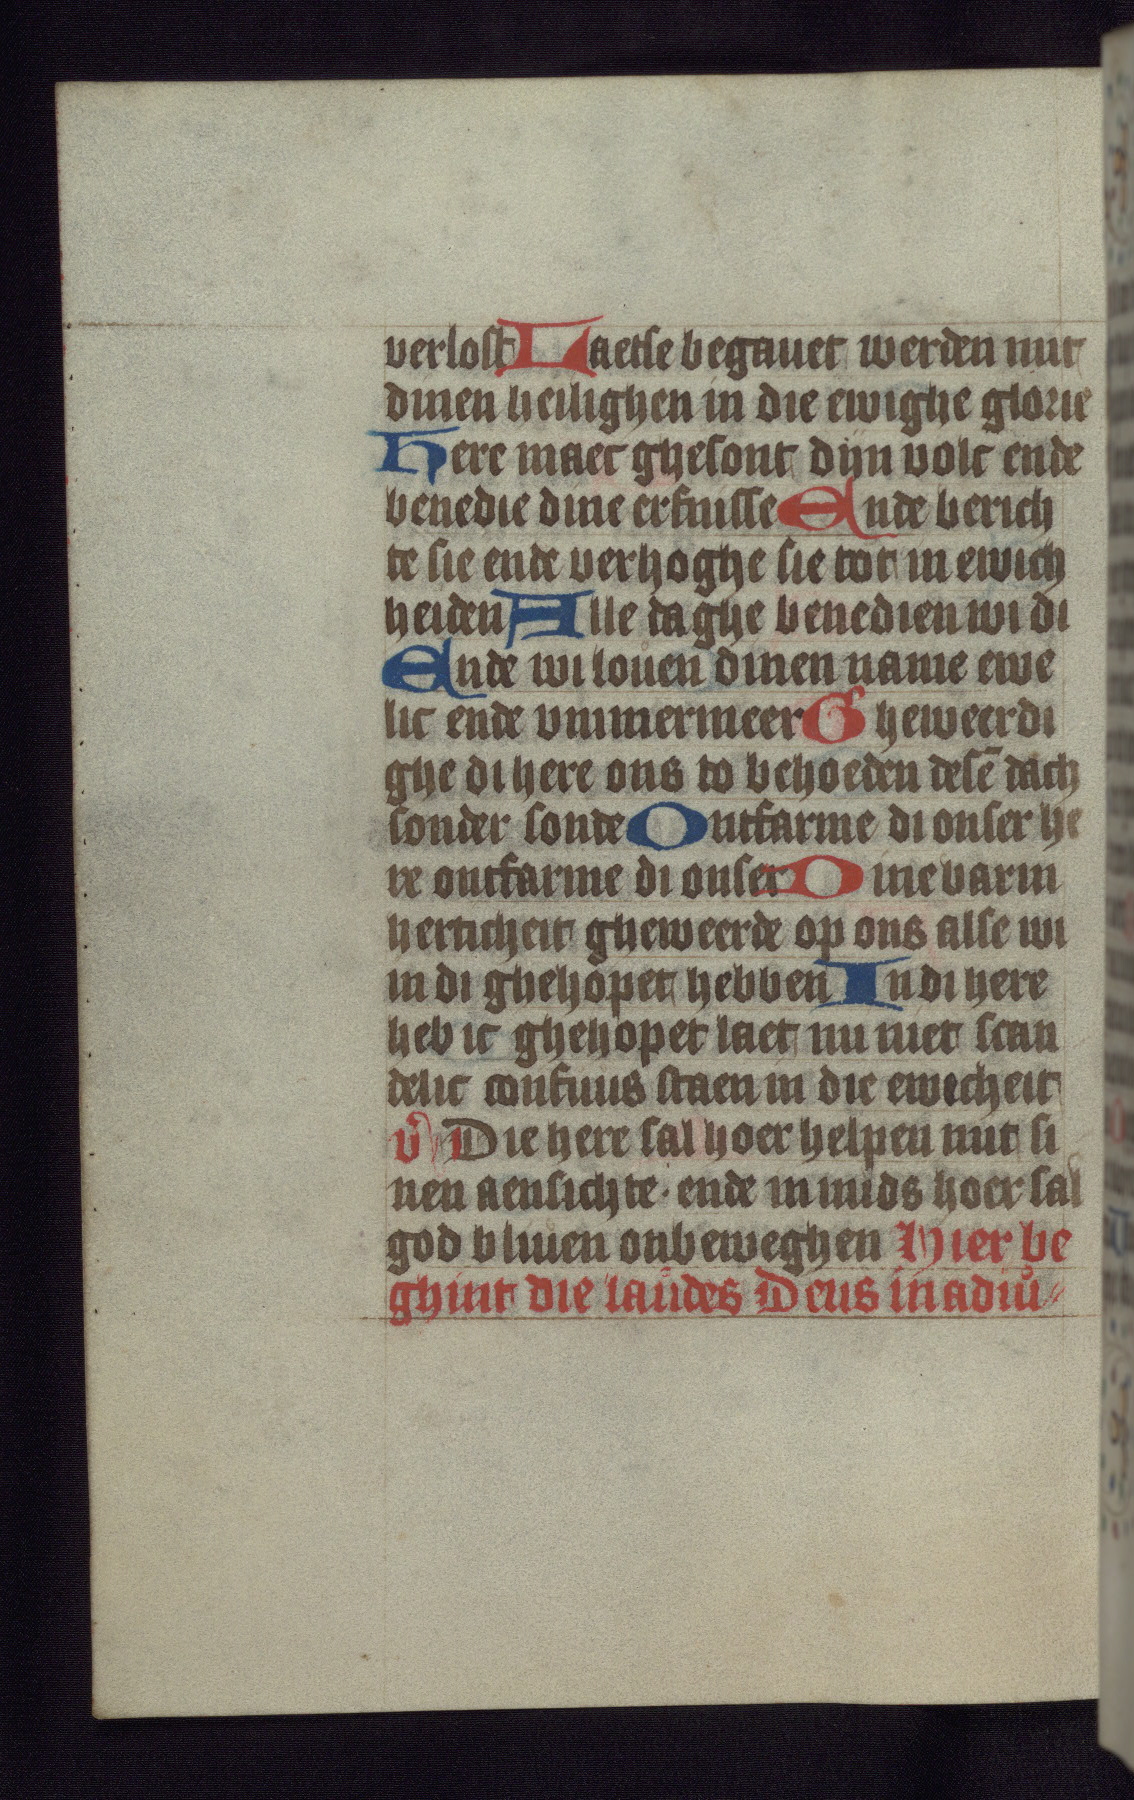 verlost Laetse begauet werden mit
dinen heilighen in die ewighe glorie
Here maec ghesont dijn volc ende
benedie dine erfnisse Ende berich
te sie ende verhoghe sie tot in ewich
heiden Alle daghe benedien wi di
Ende wi louen dinen name ewe
lic ende vmmermeer Gheweerdi
ghe di here ons to behoeden desē dach
sonder sonde Ontfarme di onser he
re ontfarme di onser Dine barm
herticheit gheweerde op ons alse wi
in di ghehopet hebben In di here
heb ic ghehopet laet mi niet scan
delic confuus staen in die ewicheit
v̉ Die here sal hoer helpen mit si
nen aensichte · ende in mids hoer sal
god bliuen onbeweghen Hier be
ghint die laudes Deus in adiu